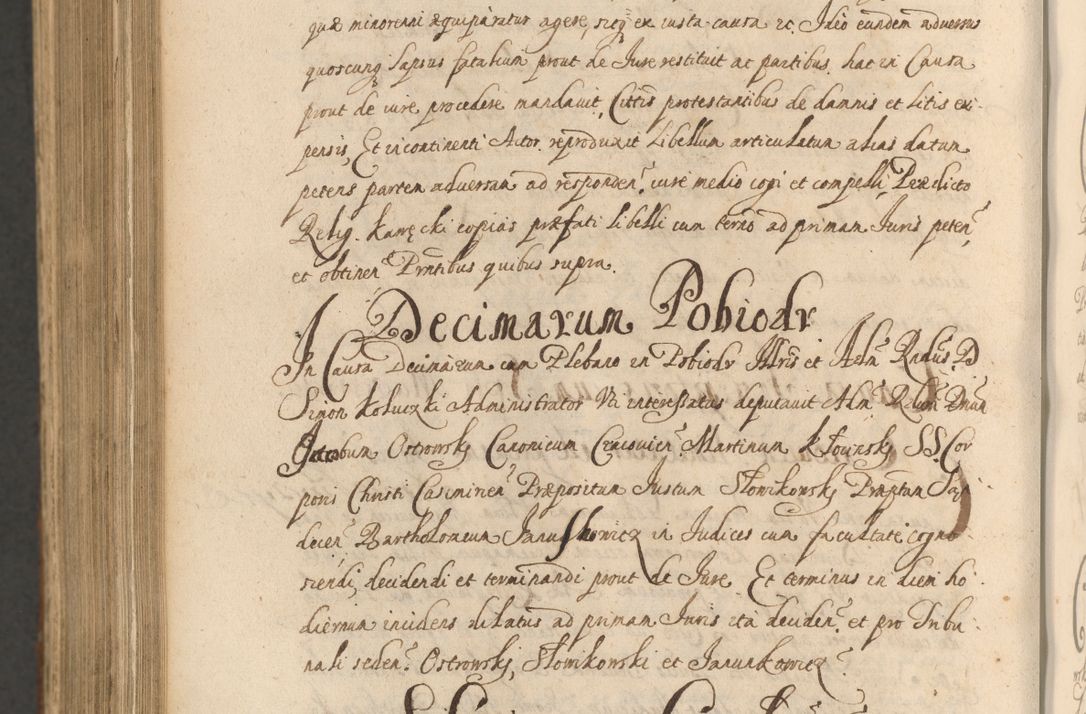 quæ minorenni æquiparatur agere, sicq ex iusta causa rc. Ideo eundem adversus
quoscunq lapsus fatalium prout de Jure restituit ac partibus hac in Causa
prout de iure procedere mandavit, Cittis protestantibus de damnis et litis ex-
pensis, Et incontinenti Actor reproduxit Libellum articulatum alias datum
petens partem adversam ad responden. iure medio cogi et compelli, Prædicto
Relig. Karręcki copias præfati libelli cum termo ad primam Juris peten
et obtinen Prntibus quibus supra.
Decimarum Pobiodr
In Causa Decimarum cum Plebano in Pobiodr Illris et Adm Rndus D
Simon Koluczki Administrator Vti interessatus deputavit Adm Rdum Dnum
Jacobum Ostrowskj Canonicum Cracovien Martinum Kłowzskj SS. Cor
poris Christi Casimirien Præpositum Justum Słowikowskj Præptum Say
decen Bartholomeum Janushowicz in Judices cum facultate cogno
scendi, decidendi et terminandi prout de Jure. Et terminus in diem ho
diernum incidens dilatus ad primam Juris ita deciden. et pro Tribu
nali seden. Ostrowskj, Słowikowski et Janunkowicz